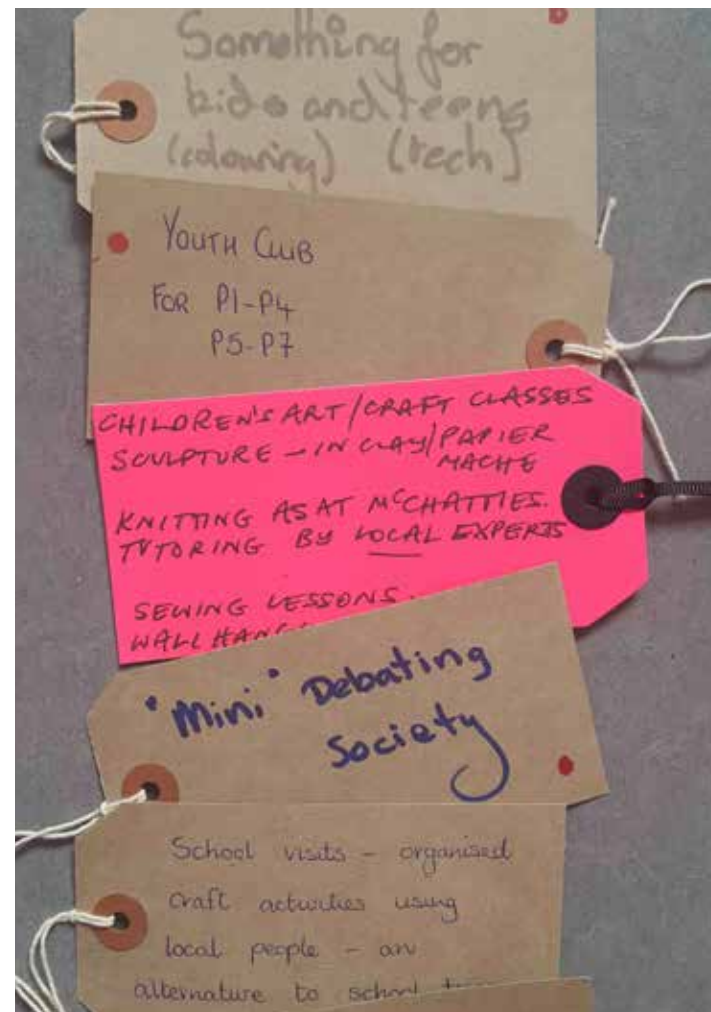 Something for
kids and teens
(colouring) (tech]
YOUTH CLUB
FOR P1-P4
P5-P7
CHILDREN'S ART/CRAFT CLASSES
SCULPTURE - IN CLAY/PAPIER
MACHE
KNITTING AS AT MCCHATTIES.
TUTORING BY LOCAL EXPERTS
SEWING LESSONS.
WALL
"Mini" Debating
Society
School visits - organised
craft activities using
local people - an
alternature to school